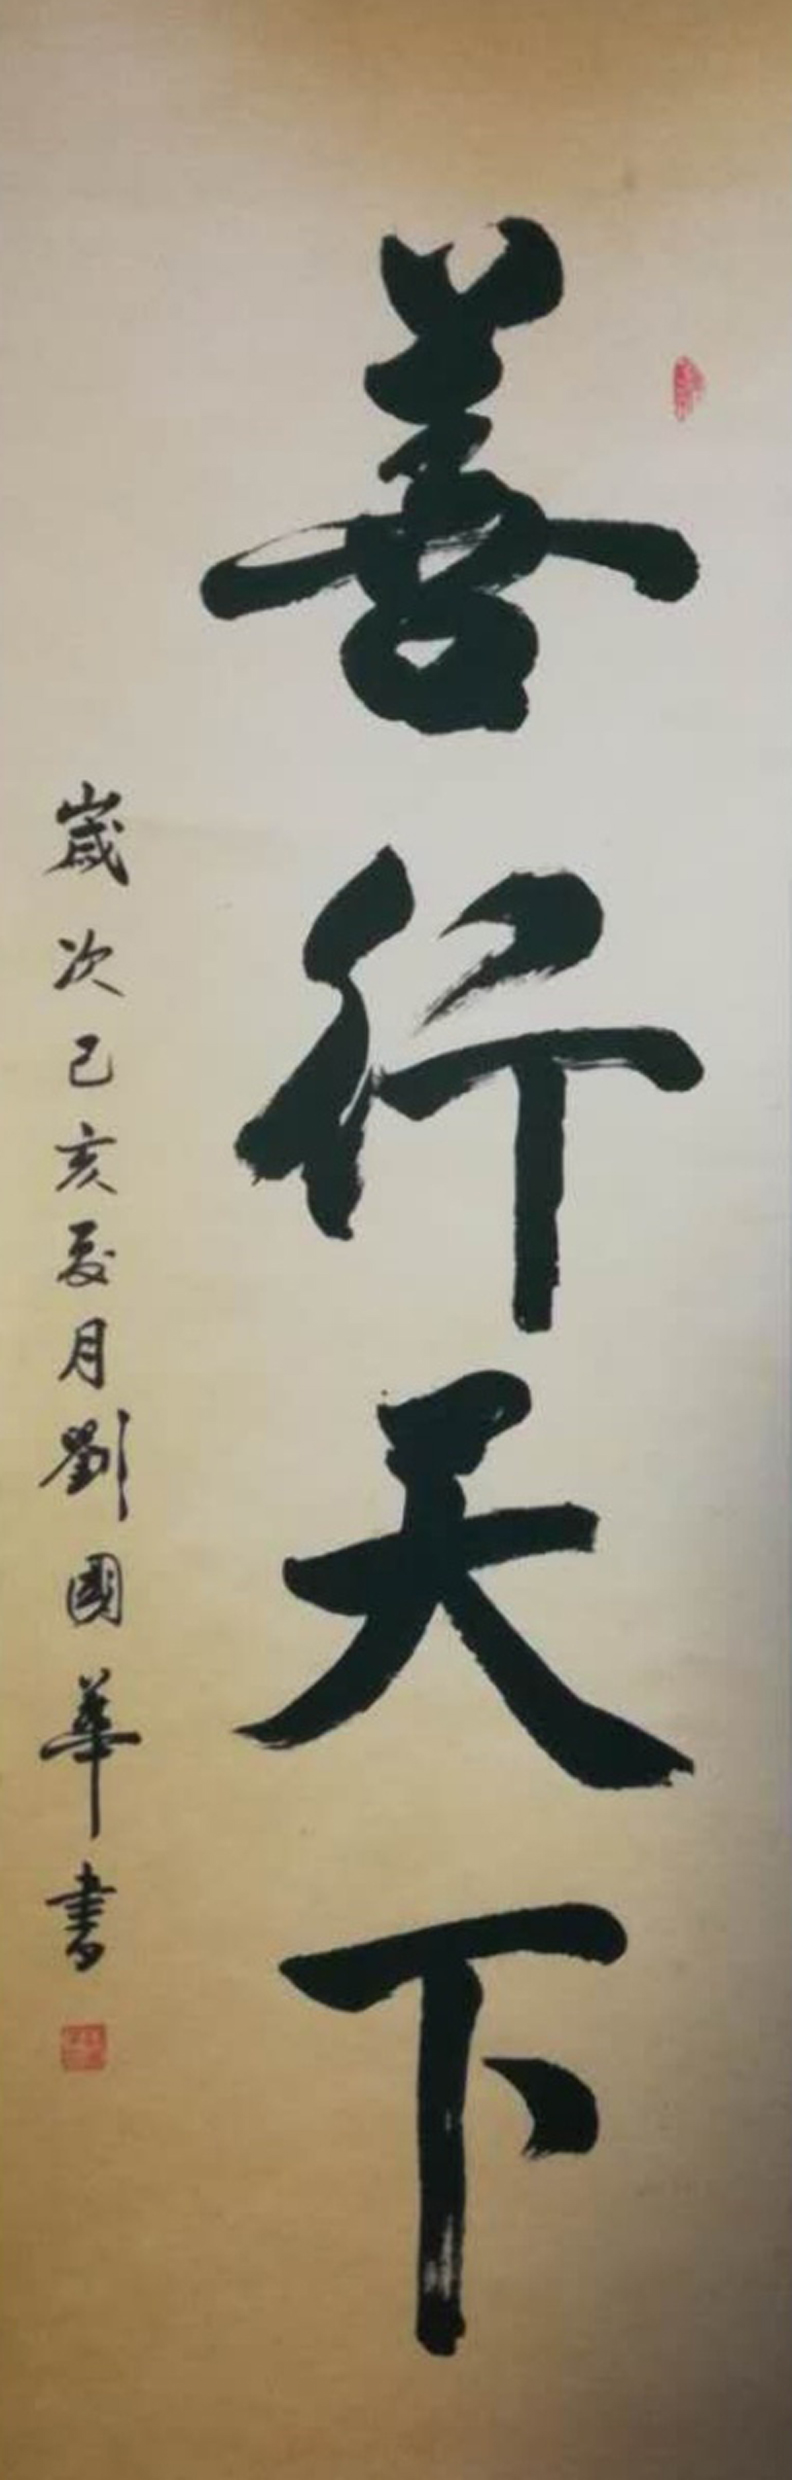 善行天下
歲次己亥夏月劉國華書